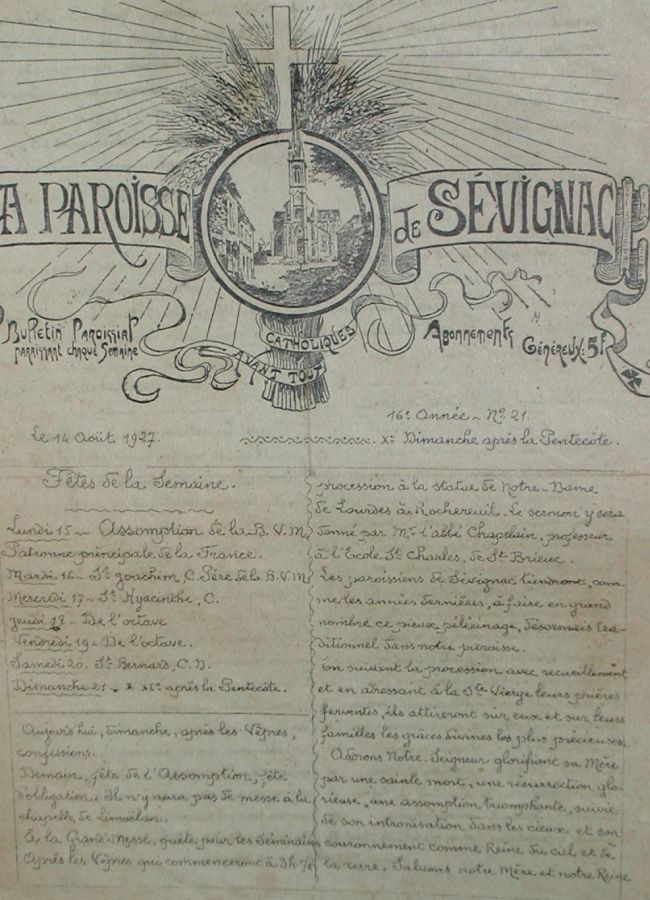 A PAROISSE
de SÉVIGNAC
Bulletin Paroissial
paraissant chaque Semaine
CATHOLIQUES
AVANT TOUT
Abonnements
Généreux: 5f
16e Année - No 21.
Le 14 Août 1927.
Xe Dimanche après la Pentecôte.
Fêtes de la Semaine.
Lundi 15 - Assomption de la B. V. M.
Patronne principale de la France.
Mardi 16 - St Joachim, C. Père de la B. V. M
Mercredi 17 - St Hyacinthe, C.
Jeudi 18 - De l'octave
Vendredi 19 - De l'octave.
Samedi 20. St Bernard, C. D.
Dimanche 21. XIe après la Pentecôte.
Aujourd'hui, dimanche, après les Vêpres,
confessions.
Demain, fête de l'Assomption, fête
d'obligation. Il n'y aura pas de messe à la
chapelle de Limoëlan.
À la Grand-Messe, quête pour les Séminaires
Après les Vêpres qui commenceront à 3h ½
procession à la statue de Notre-Dame
de Lourdes à Rochereuil. Le sermon y sera
donné par Mr l'abbé Chapelain, professeur
à l'École St Charles, de St Brieuc.
Les paroissiens de Sévignac tiendront, com-
me les années dernières, à faire en grand
nombre ce pieux pèlerinage, désormais tra-
ditionnel dans notre paroisse.
En suivant la procession avec recueillement
et en adressant à la Ste Vierge leurs prières
ferventes, ils attireront sur eux et sur leurs
familles les grâces divines les plus précieuses.
Adorons Notre Seigneur glorifiant sa Mère
par une sainte mort, une résurrection glo-
rieuse, une assomption triomphante, suivie
de son intronisation dans les cieux et son
couronnement comme Reine du ciel et de
la terre. Saluons notre Mère et notre Reine